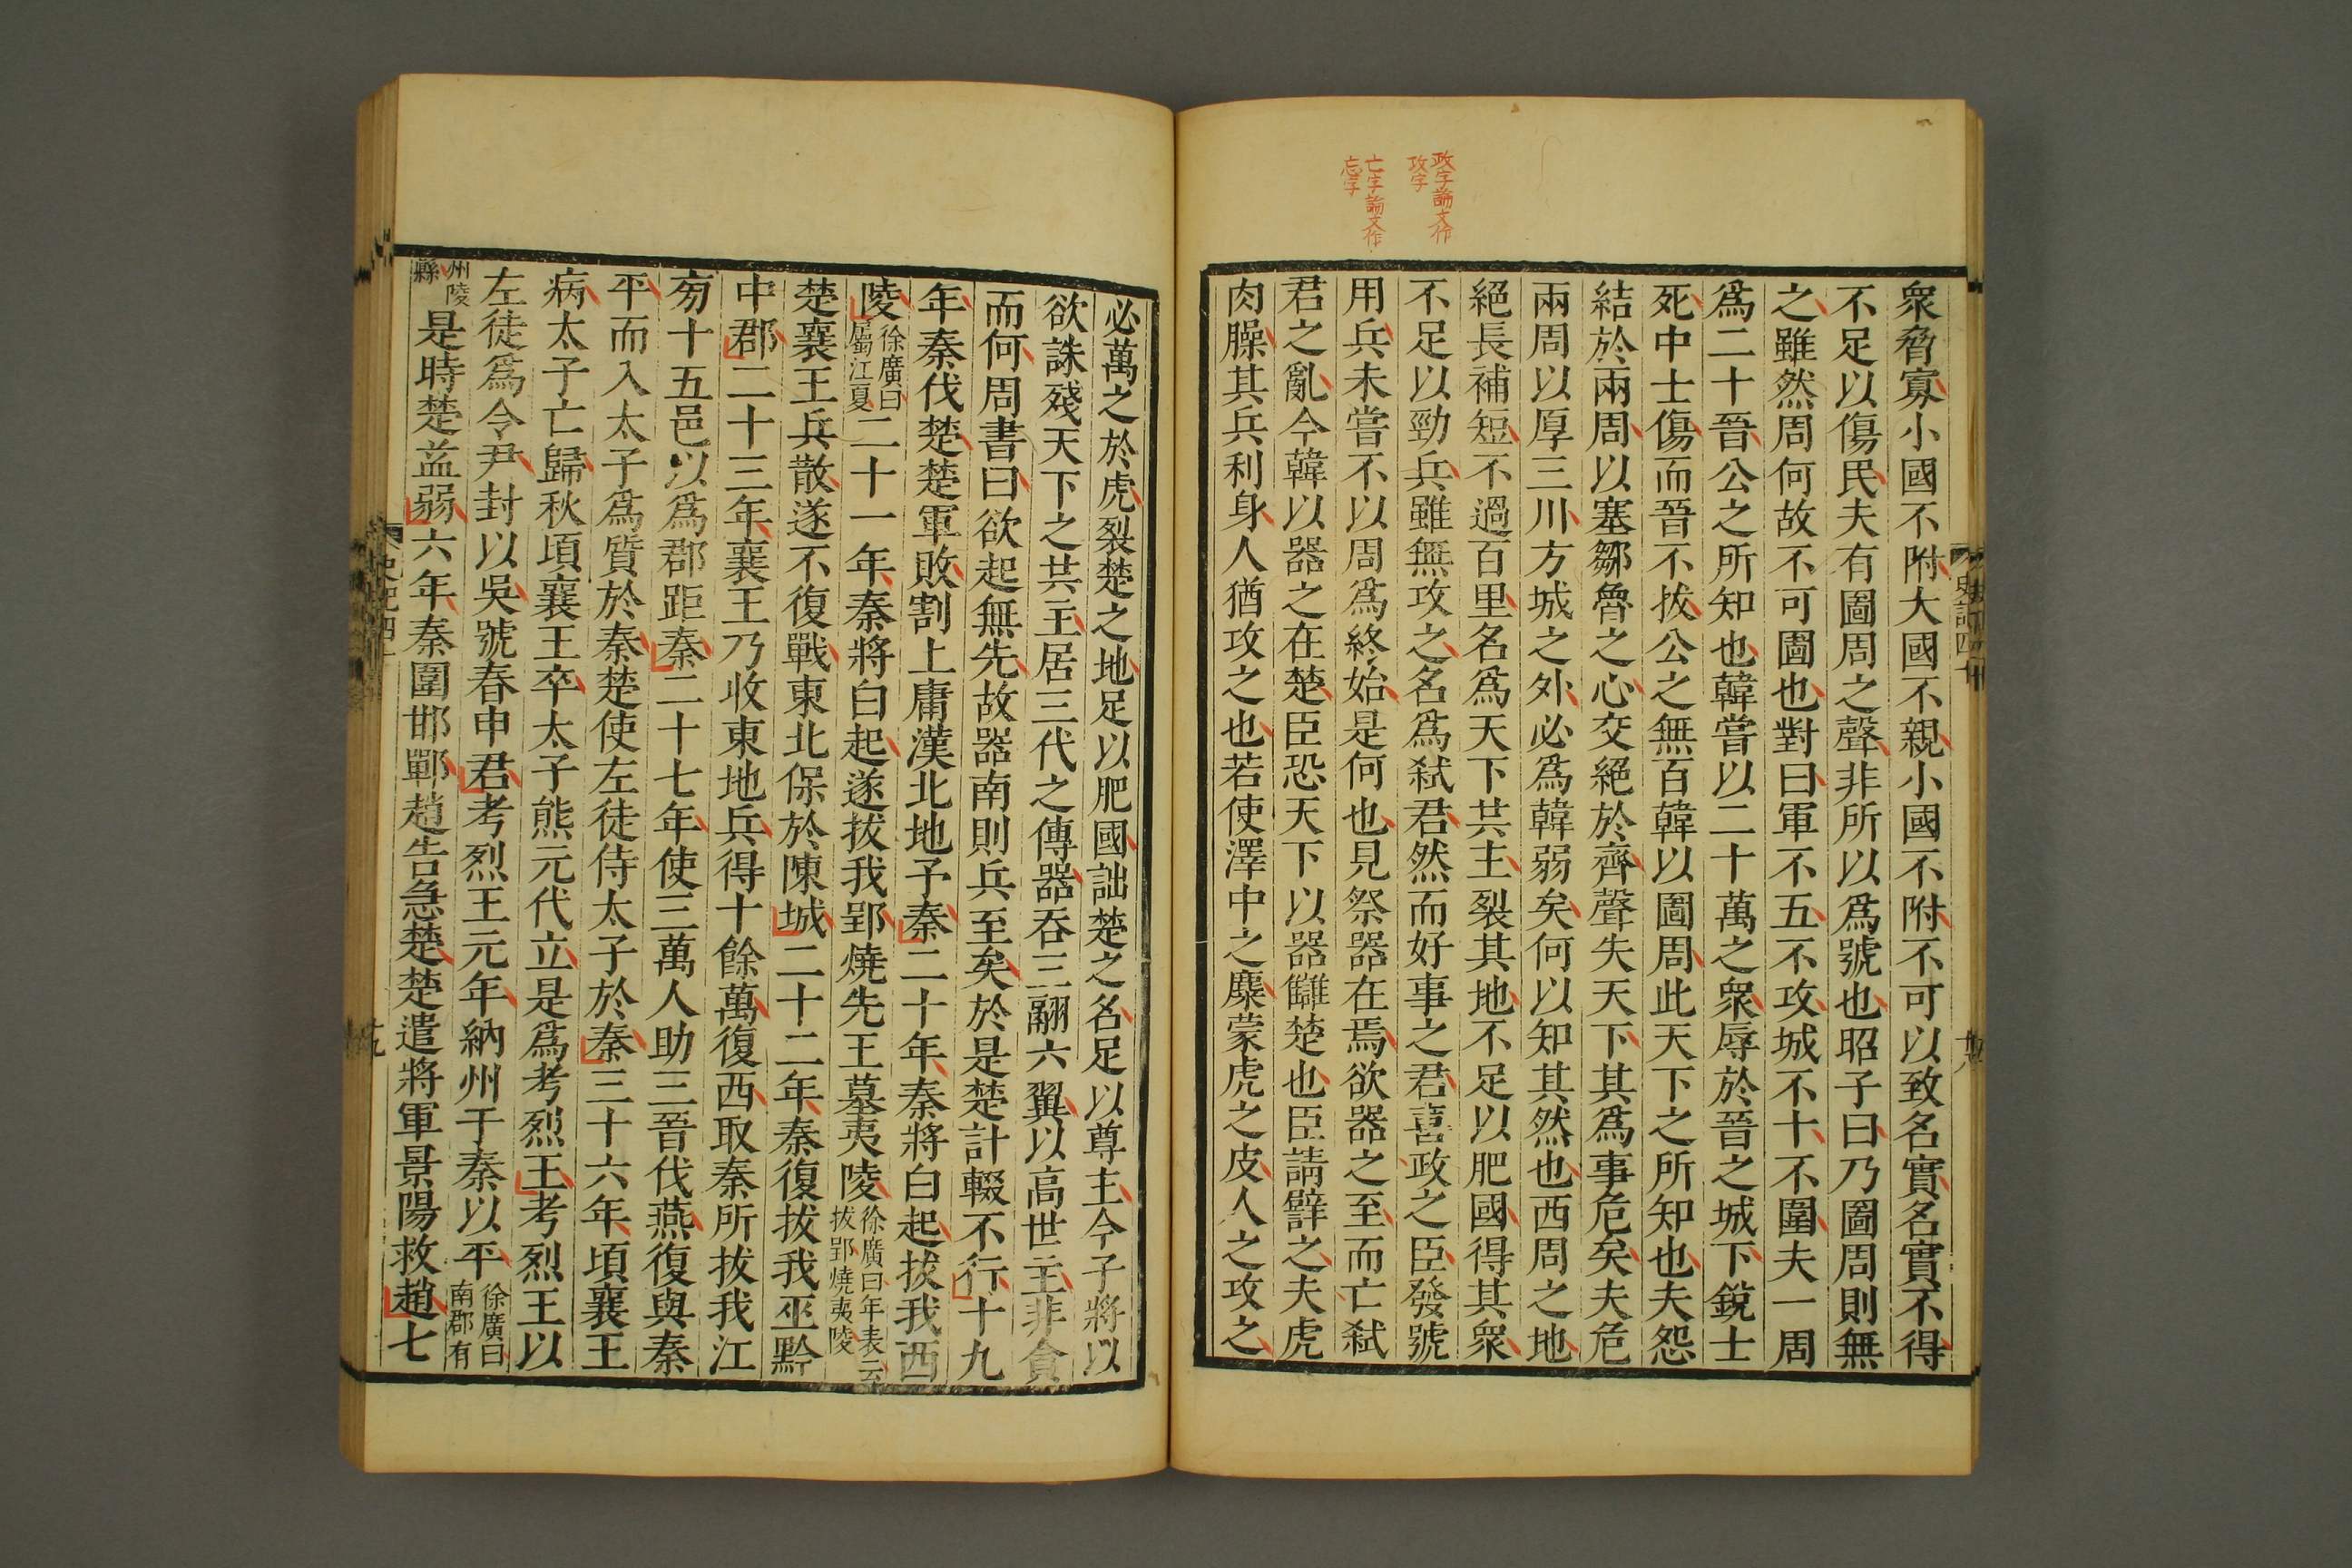 政字論文作
攻字
亡字論文作
忘字
衆脅寡小國不附大國不親小國不附不可以致名實名實不得
不足以傷民夫有圖周之聲非所以爲號也昭子曰乃圖周則無
之雖然周何故不可圖也對曰軍不五不攻城不十不圍夫一周
爲二十晉公之所知也韓嘗以二十萬之衆辱於晉之城下銳士
死中士傷而晉不拔公之無百韓以圖周此天下之所知也夫怨
結於兩周以塞鄒魯之心交絕於齊聲失天下其爲事危矣夫危
兩周以厚三川方城之外必爲韓弱矣何以知其然也西周之地
絕長補短不過百里名爲天下共主裂其地不足以肥國得其衆
不足以勁兵雖無攻之名爲弒君然而好事之君喜政之臣發號
用兵未嘗不以周爲終始是何也見祭器在焉欲器之至而亡弒
君之亂今韓以器之在楚臣恐天下以器讎楚也臣請譬之夫虎
肉臊其兵利身人猶攻之也若使澤中之麋蒙虎之皮人之攻之
史記四十
十八
必萬之於虎裂楚之地足以肥國詘楚之名足以尊主今子將以
欲誅殘天下之共主居三代之傳器吞三翮六翼以高世主非貪
而何周書曰欲起無先故器南則兵至矣於是楚計輟不行十九
年秦伐楚楚軍敗割上庸漢北地予秦二十年秦將白起拔我西
陵徐廣曰屬江夏二十一年秦將白起遂拔我郢燒先王墓夷陵徐廣曰年表云拔郢燒夷陵
楚襄王兵散遂不復戰東北保於陳城二十二年秦復拔我巫黔
中郡二十三年襄王乃收東地兵得十餘萬復西取秦所拔我江
旁十五邑以爲郡距秦二十七年使三萬人助三晉伐燕復與秦
平而入太子爲質於秦楚使左徒侍太子於秦三十六年頃襄王
病太子亡歸秋頃襄王卒太子熊元代立是爲考烈王考烈王以
左徒爲令尹封以吳號春申君考烈王元年納州于秦以平徐廣曰南郡有
州陵縣是時楚益弱六年秦圍邯鄲趙告急楚楚遣將軍景陽救趙七
史記四十
十九